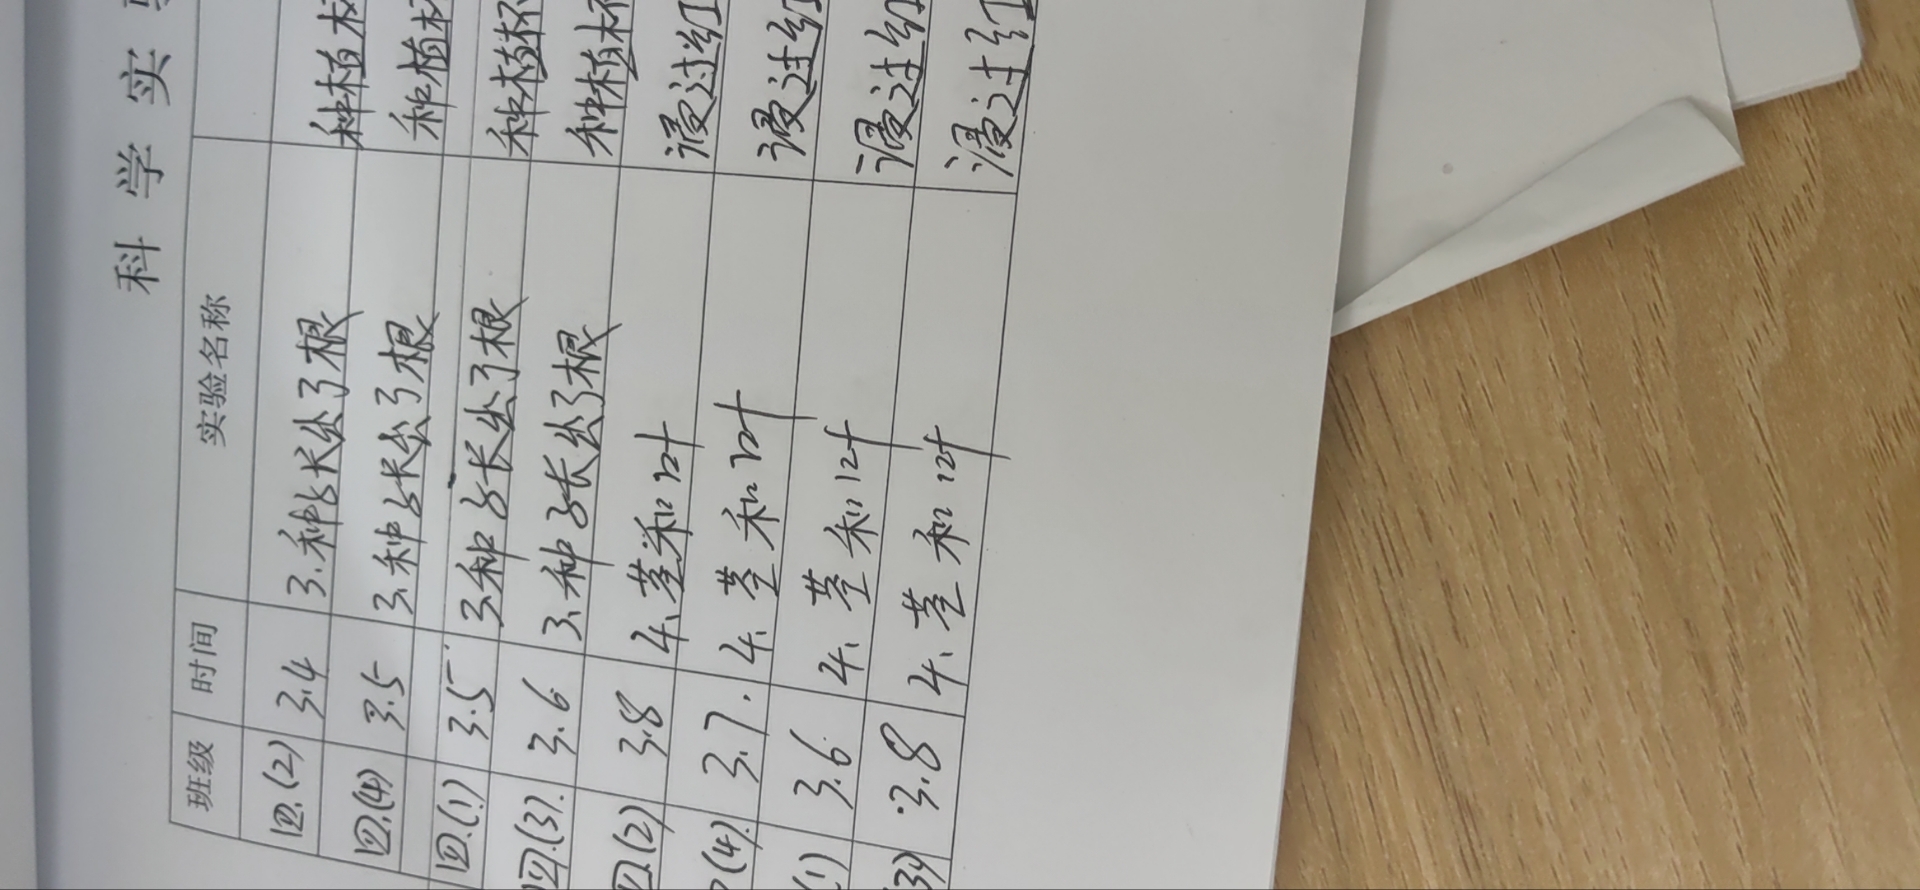 科 学 实
班级 时间 实验名称
四.(2) 3.4 3.种子长出了根 种植杯
四.(4) 3.5 3.种子长出了根 种植杯
四.(1) 3.5 3.种子长出了根 种植杯
四.(3). 3.6 3、种子长出了根 种植杯
四.(2) 3.8 4、茎和叶 浸过红
(4). 3.7. 4、茎和叶 浸过红
(1) 3.6 4、茎和叶 浸过红
3.8 4、茎和叶 浸过红